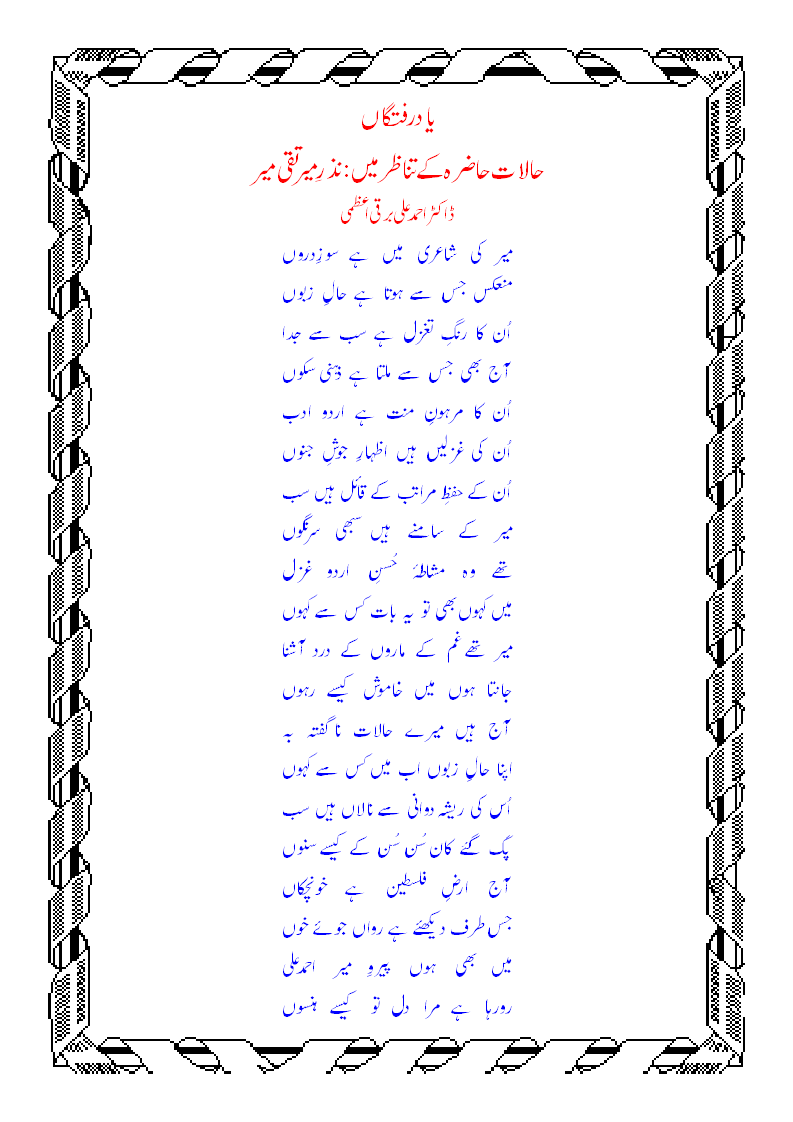 یادرفتگاں
حالات حاضرہ کے تناظر میں : نذرِ میر تقی میر
ڈاکٹر احمد علی برقی اعظمی
میر کی شاعری میں ہے سوزِ دروں
منعکس جس سے ہوتا ہے حالِ زبوں
اُن کا رنگِ تغزل ہے سب سے جدا
آج بھی جس سے ملتا ہے ذہنی سکوں
اُن کا مرہونِ منت ہے اردو ادب
اُن کی غزلیں ہیں اظہارِ جوشِ جنوں
اُن کے حفظِ مراتب کے قائل ہیں سب
میر کے سامنے ہیں سبھی سرنگوں
تھے وہ مشاطۂ حُسنِ اردو غزل
میں کہوں بھی تو یہ بات کس سے کہوں
میر تھے غم کے ماروں کے درد آشنا
جانتا ہوں میں خاموش کیسے رہوں
آج ہیں میرے حالات ناگفتہ بہ
اپنا حالِ زبوں اب میں کس سے کہوں
اُس کی ریشہ دوانی سے نالاں ہیں سب
پک گئے کان سُن سُن کے کیسے سنوں
آج ارضِ فلسطین ہے خونچکاں
جس طرف دیکھئے ہے رواں جوئے خوں
میں بھی ہوں پیروِ میر احمد علی
رورہا ہے مرا دل تو کیسے ہنسوں